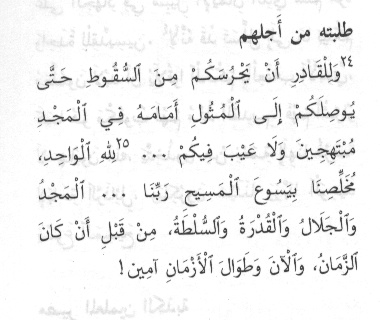 طلبته من أَجلهم
٢٤ وَلِلْقَادِرِ أَنْ يَحْرُسَكُمْ مِنَ ٱلسُّقُوطِ حَتَّى
يُوصِلَكُمْ إِلَى ٱلْمُثُولِ أَمَامَهُ فِي ٱلْمَجْدِ
مُبْتَهِجِينَ وَلَا عَيْبَ فِيكُمْ ... ٢٥ لِلهِ ٱلْوَاحِدِ،
مُخَلِّصِنَا بِيَسُوعَ ٱلْمَسِيحِ رَبِّنَا ... ٱلْمَجْدُ
وَٱلْجَلَالُ وَٱلْقُدْرَةُ وَٱلسُّلْطَةُ، مِنْ قَبْلِ أَنْ كَانَ
ٱلزَّمَانُ، وَٱلْآنَ وَطَوَالَ ٱلْأَزْمَانِ آمِين!